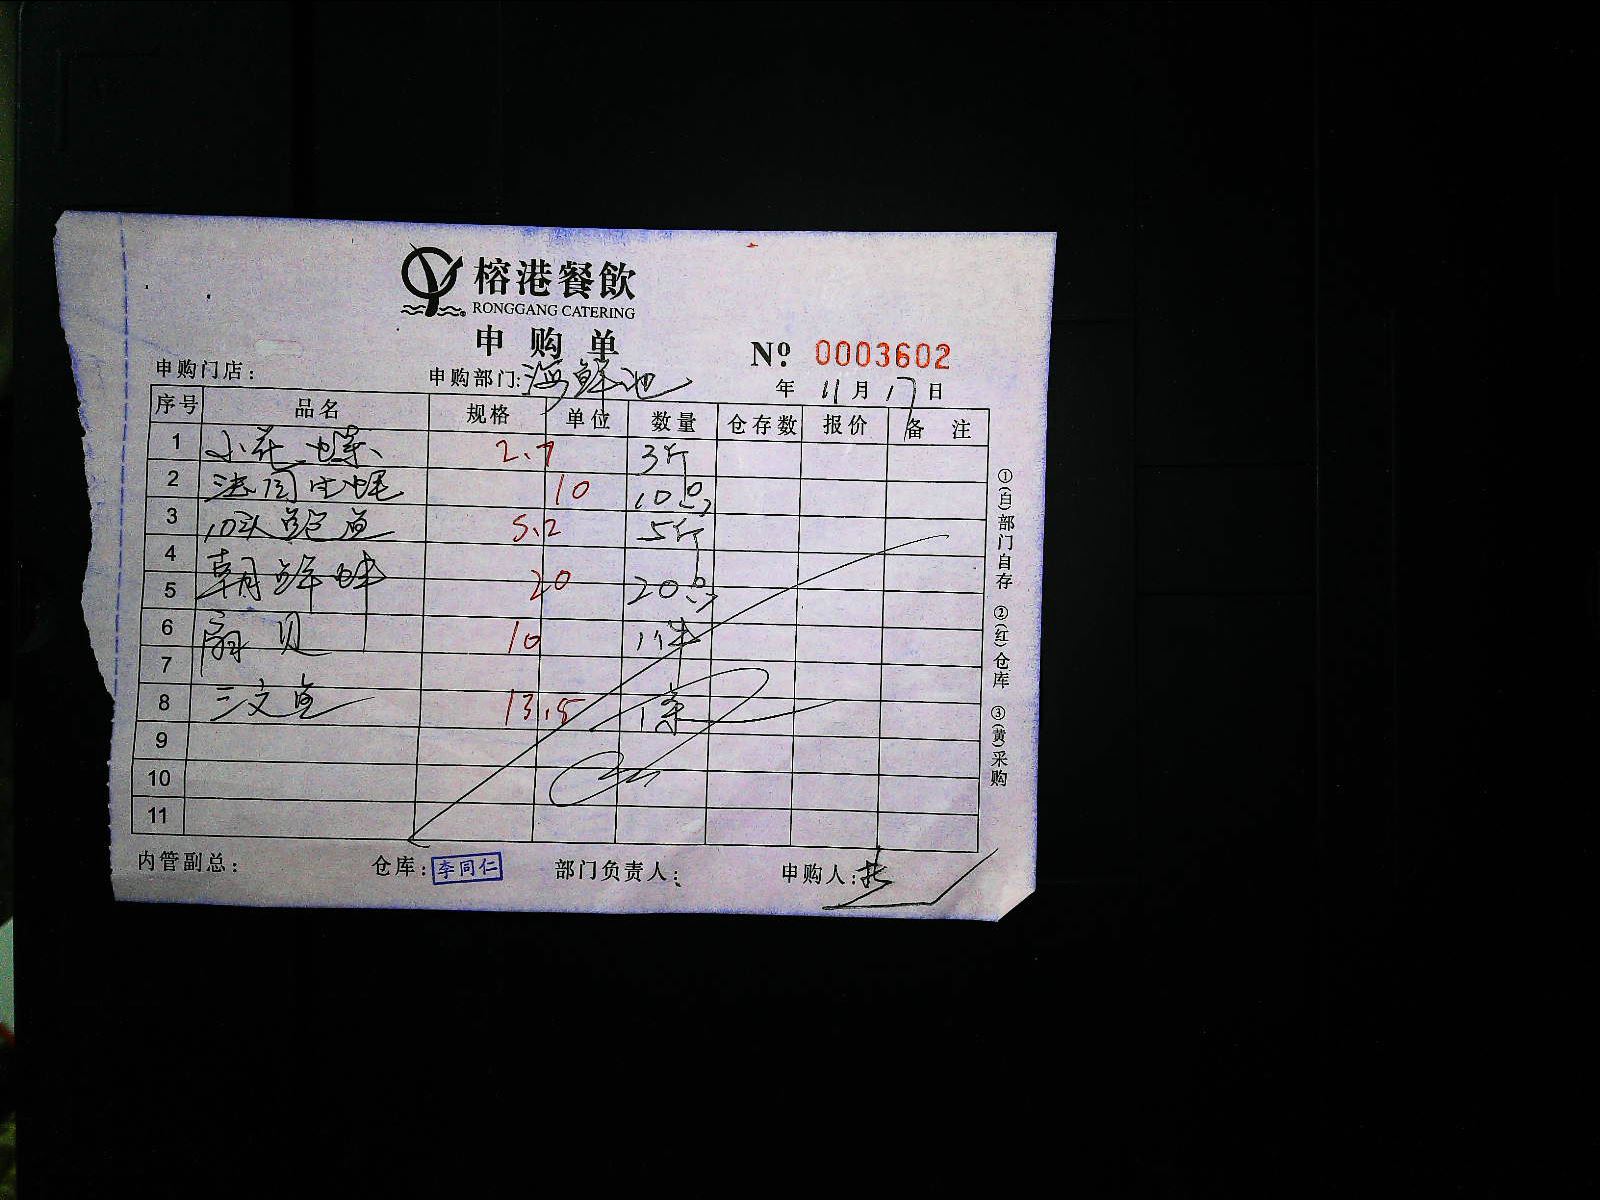 榕港餐飲
RONGGANG CATERING
申购单
Nº 0003602
申购门店： 申购部门：海鲜池 年 11月17日
序号 品名 规格 单位 数量 仓存数 报价 备注
1 小花螺 2.7 3斤
2 法国生蚝 10 10只
3 10头鲍鱼 5.2 5斤
4 朝鲜蚌 20 20只
5
6 扇贝 10 1件
7
8 三文鱼 13.5 1条
9
10
11
①(白)部门自存 ②(红)仓库 ③(黄)采购
内管副总： 仓库：李同仁 部门负责人： 申购人：